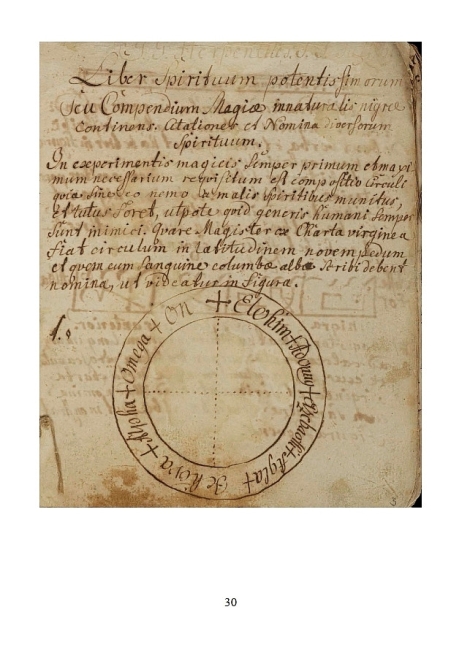 Liber Spirituum potentissimorum
seu Compendium Magiæ innaturalis nigræ
continens Citationes et Nomina diversorum
Spirituum.
In experimentis magicis semper primum et maxi
mum necessarium requisitum est compositio Circuli
quia sine eo nemo a malis spiritibus munitus,
et tutus foret, utpote qvid generis humani semper
sunt inimici. Quare Magister ex Charta virginea
fiat circulum in latitudinem novem pedum
et qvem cum sanguine columbæ albæ scribi debent
nomina, ut videatur in figura.
1.
+ Elohim + Adonay + + Agla + + Alpha + Omega + On
5
30